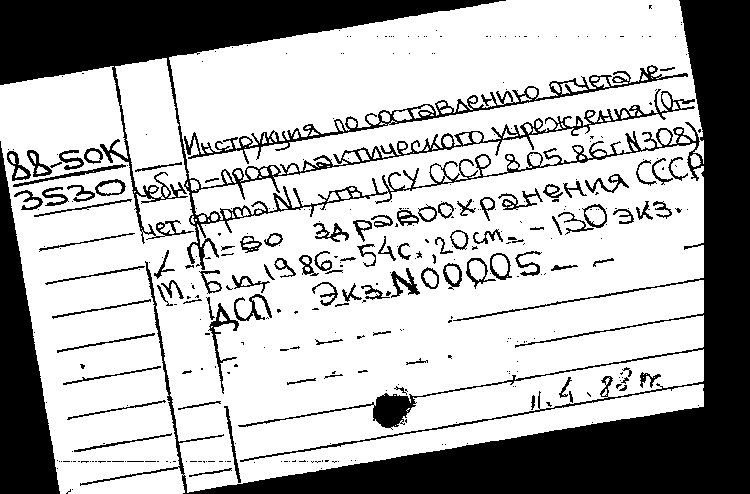 88-50К
3530
Инструкция по составлению отчета ле-
чебно-профилактического учреждения: (От-
чет. форма N1, утв. ЦСУ СССР 8.05.86г. N308):
М-во здравоохранения СССР.
М.: Б.и., 1986.-54с.; 20см. - 130 экз.
ДСП. Экз. N00005
11.4.88г.